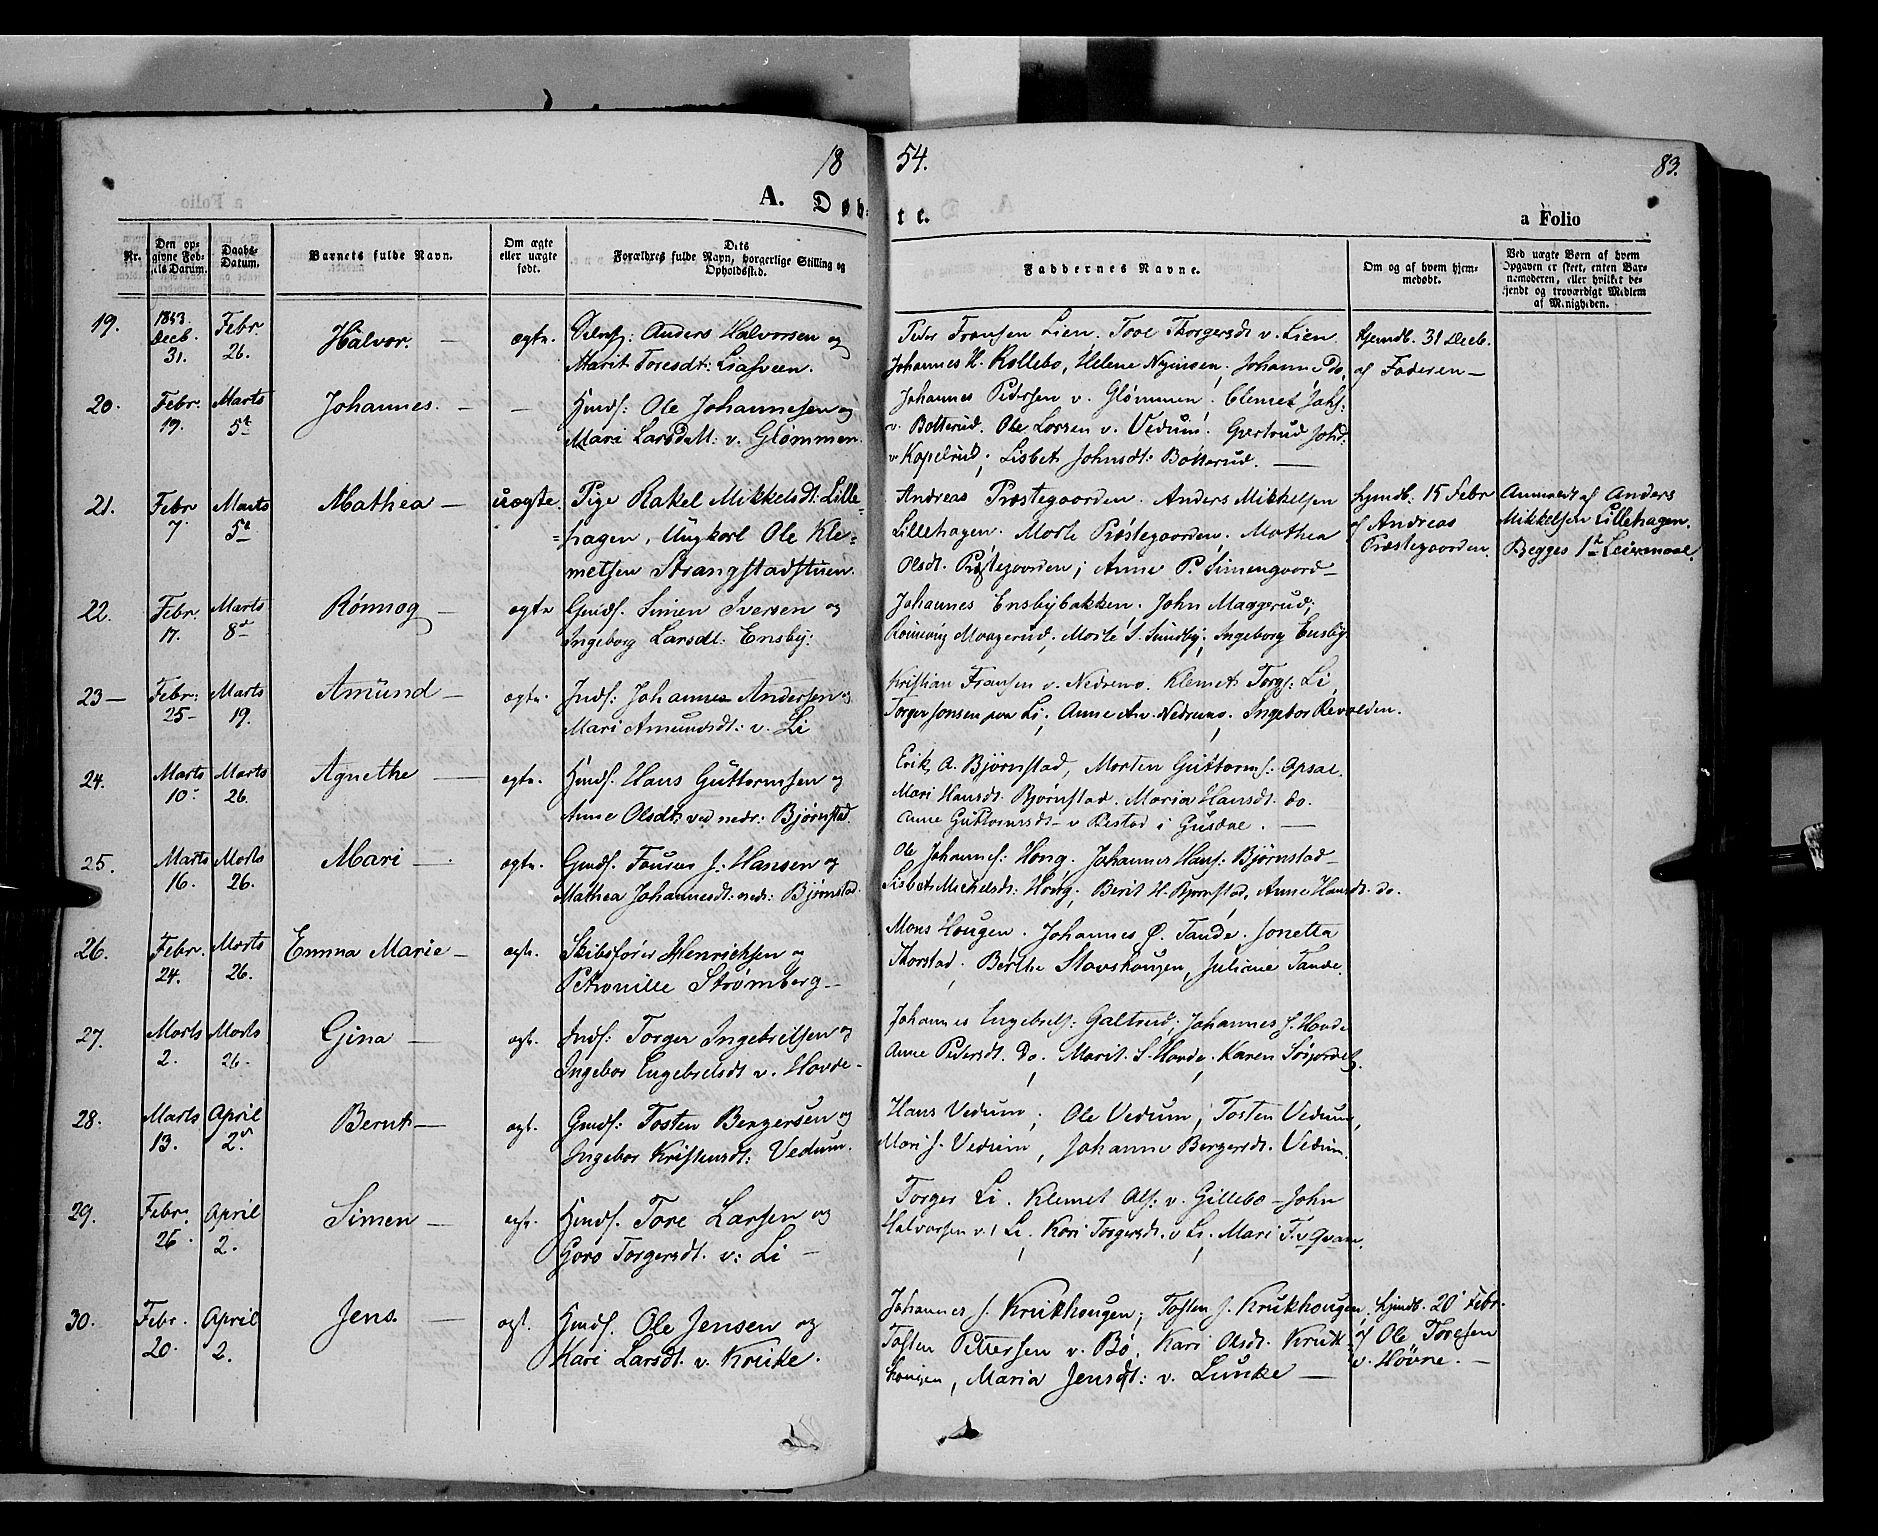 18 54. 83.
A. Døbte. a Folio
Nr.
Den opgivne Fødsels Datum.
Daabs-Datum.
Barnets fulde Navn.
Om ægte eller uægte født.
Dets Forældres fulde Navn, borgerlige Stilling og Opholdssted.
Faddernes Navne.
Om og af hvem hjemmedøbt.
Ved uægte Børn af hvem Opgaven er skeet, enten Barnemoderen, eller hvilket bekjendt og troværdigt Medlem af Menigheden.
19. 1853 Decb. 31. Febr 26. Halvor. — ægte.
Anders Halvorsen og
Marit Toresdt: Liasveen.
Peder Fransen Lien. Tove Thorgersdt v. Lien
Johannes H. Kollebo, Helene Johanne Do.
Hjemdb. 31 Decb.
af Faderen —
20. Febr. 19. Marts 5te Johannes. — —
Huusf: Ole Johannesen og
Mari Larsdatt: v. Glømmen.
Johannes Pedersen v. Glømmen. Clemet Johs:
v. Botterud. Ole Larsen v. Vedum. Gjertrud Johd.
v Kapelrud; Lisbet Johnsdt: Botterud. —
21. Febr 7. Marts 5te Mathea — uægte.
Pige Rakel Mikkelsdt: Lille=
=hagen, Ungkarl Ole Kle=
metsen Strangstadstuen.
Andreas Præstegaarden. Anders Mikkelsen
Lillehagen. Marte Præstegaarden. Mathea
Olsdt. Præstegaarden; Anne P. Simengaard—
hjemdb: 15 Febr
af Andreas
Præstegaarden.
Anmeldt af Anders
Mikkelsen Lillehagen.
Begges 1te Leiermaal.
22. Febr. 17. Marts 8de Rønnog — ægte
Gmdf. Simen Iversen og
Ingeborg Larsdt: Ensby:
Johannes Ensbybakken. John Maagerud;
Rønnaug Maagerud; Marte S. Sundby; Ingeborg Ensby.
23— Febr: 25— Marts 19. Amund — ægte.
Indf: Johannes Andersen og
Mari Amundsdt: v. Li
Kristian Fransen v. Nedreno. Klemet Torgs: Li,
Torger Jonsen paa Li; Anne A v. Nedreno. Ingebor Revolden.
24. Marts 10. Marts 26. Agnethe — ægte.
Huusf. Hans Guttormsen og
Anne Olsdt: ved nedr: Bjørnstad.
Erik A. Bjørnstad, Morten Guttorms: Opsal.
Mari Hansdt. Bjørnstad. Maria Hansdt. do.
Anne Guttormsdt— v Ristad i Gusdal. —
25. Marts 16. Marts 26. Mari — ægte.
Gmdf. J. Hansen og
Mathea Johannesdt: nedr: Bjørnstad.
Ole Johannes: Hong. Johannes Hans: Bjørnstad—
Lisbet Michelsdt: Hong; Berit H. Bjørnstad, Anne Hansdt. do.
26. Febr. 24. Marts 26. Emma Marie — ægt.
Skibsfører Henrichsen og
Petronille Strømberg —
Mons Hougen. Johannes O. Tande. Jonetta
Thorstad. Berthe Stavshougen, Juliane Tande.
27. Marts 2. Marts 26. Gina — ægt.
Indf: Torger Ingebrigtsen og
Ingebor Engebretsdt v. Hovde—
Johannes Engebrets: Galtrud; Johannes J. Hovde
Anne Pedersdt. Do. Marit S. Hovde. Karen Sørjordet.
28. Marts 13. April 2den Bernt — ægt.
Gmdf: Tosten Bergersen og
Ingebor Kristensdt: Vedum.
Hans Vedum; Ole Vedum; Tosten Vedum,
Mari J. Vedum, Johanne Bergersdt. Vedum.
29. Febr. 26. April 2. Simen — ægt.
Huusf. Tore Larsen og
Goro Torgersdt. v: Li —
Torger Li. Klemet Ols: v. Gillebo — John
Halvorsen v. Li; Kari Torgersdt. v Li. Mari T. v Qvam.
30. Febr. 20. April 2. Jens. — ægt.
Huusf. Ole Jensen og
Kari Larsdt. v. Kruke.
Johannes J. Krukhougen; Tosten J. Krukhougen,
Tosten Pettersen v. Bø. Kari Olsdt. Kruk=
hougen, Maria Jensdt: v. Lunke —
hjemdb. 20 Febr.
af Ole Toresen
v. Hovne. —